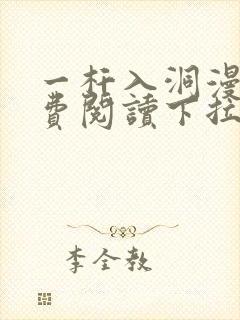 一杆入洞漫
費閱讀下拉
李全教